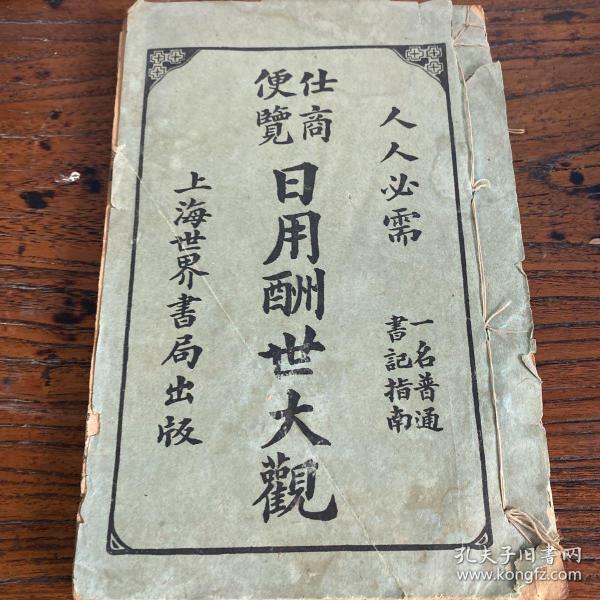 人人必需
一名普通
書記指南
仕商
便覽
日用酬世大觀
上海世界書局出版
孔夫子旧書网
www.kongfz.com